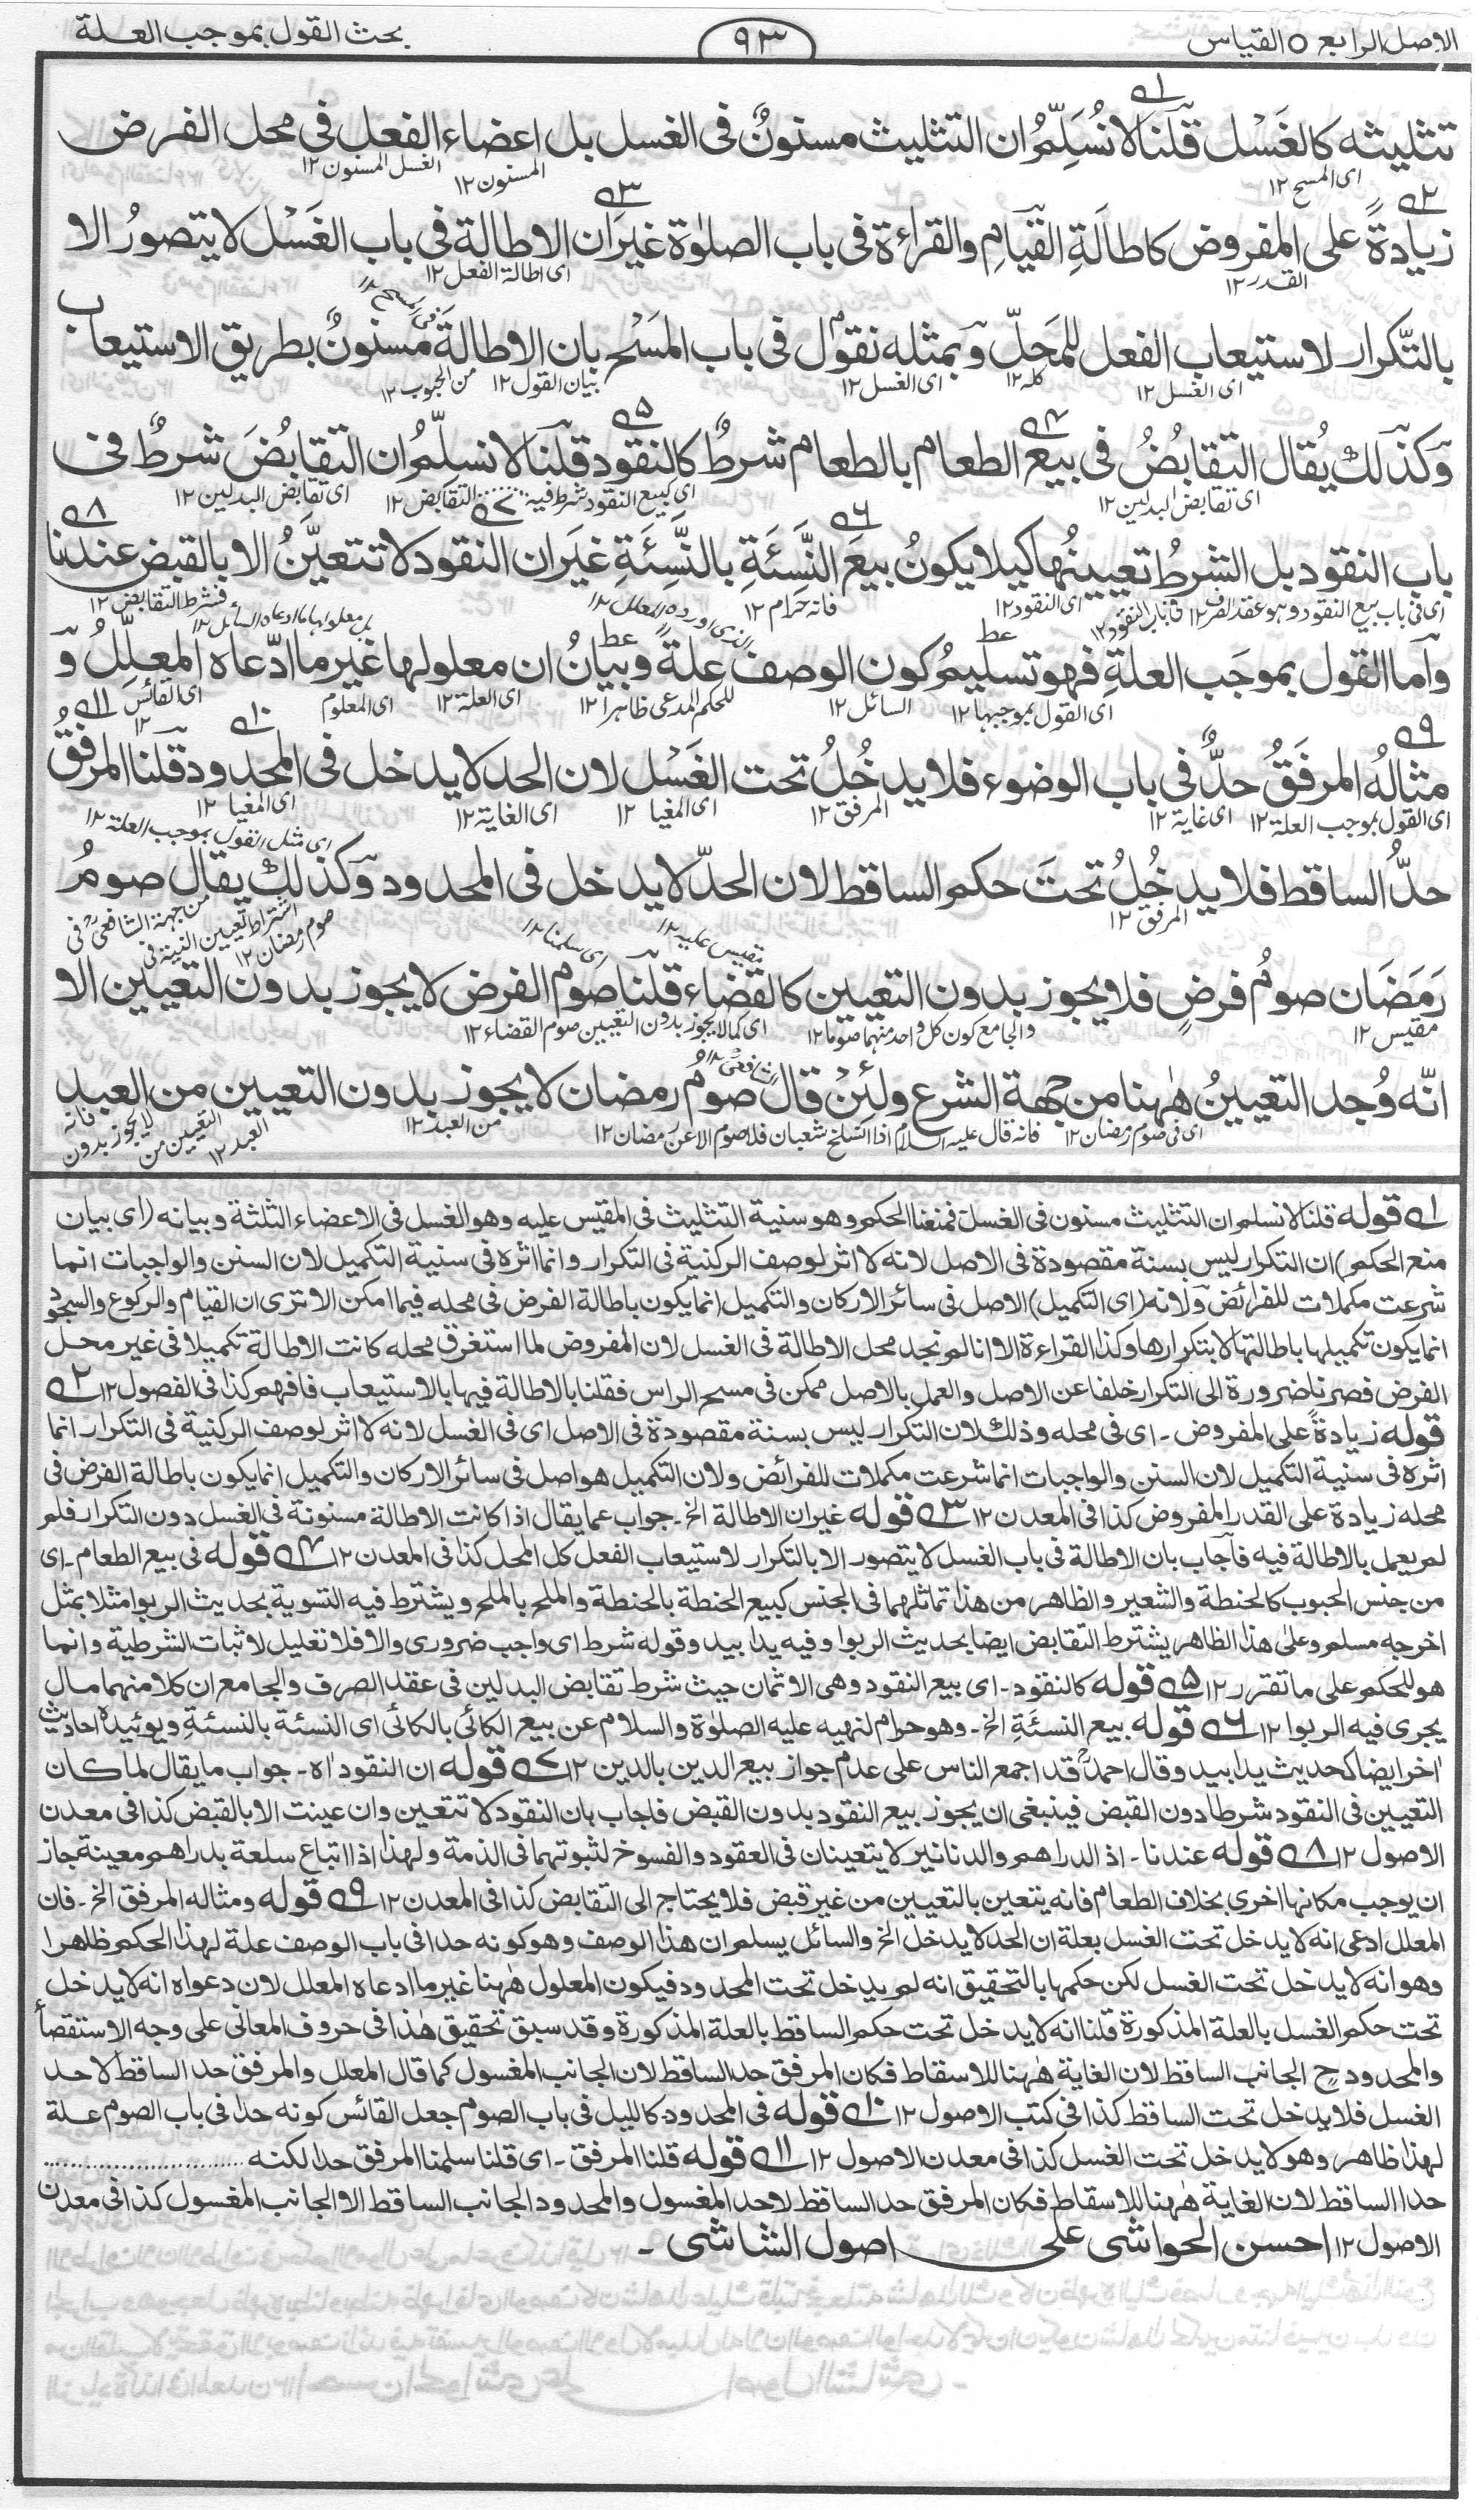 الاصل الرابع ٥ القياس
٩٣
بحث القول بموجب العلة
تثليثه كالغَسْل قلنا لا نُسَلِّمُ ان التثليث مسنونٌ فى الغسل بل اعضاء الفعل فى محل الفرض
اى المسح ١٢ المسنون ١٢ الغسل المسنون ١٢
زيادةً على المفروض كاطالَةِ القيامِ والقراءة فى باب الصلوٰة غيرَ ان الاطالة فى باب الغَسْل لا يتصورُ الا
القدر ١٢ اى اطالة الفعل ١٢
بالتّكرار لاستيعاب الفعل للمَحَلّ وبمثله نقول فى باب المَسْح بان الاطالةَ مسنونٌ بطريق الاستيعاب
اى الغسل ١٢ كله ١٢ اى الغسل ١٢ بيان القول ١٢
وكذٰلك يُقال التقابُضُ فى بيع الطعام بالطعام شرطٌ كالنقود قلنا لا نسلّمُ ان التقابُضَ شرطٌ فى
اى تقابض البدلين ١٢ اى كبيع النقود شرط فيه التقابض ١٢ اى تقابض البدلين ١٢
باب النقود بل الشرطُ تعيينُها كيلا يكونُ بيعَ النَّسئَةِ بالنَّسِئَةِ غيَر ان النقود لا تتعيَّنُ الا بالقبض عندنا
اى فى باب بيع النقود وهو عقد الصرف ١٢ اى النقود ١٢ فانه حرام ١٢ فشرط التقابض ١٢
واما القول بموجَب العلةِ فهو تسليمُ كون الوصف علةً وبيانُ ان معلولها غيرُ ما ادّعاه المعلِّلُ و
اى القول بموجبها ١٢ السائل ١٢ للحكم المدعى ظاهرا ١٢ اى العلة ١٢ اى المعلوم اى القائس ١٢
مثالهُ المرفَقُ حدٌّ فى باب الوضوء فلا يدخُلُ تحت الغَسْل لان الحد لا يدخل فى المحدود قلنا المرفقُ
اى القول بموجب العلة ١٢ اى غاية ١٢ المرفق ١٢ اى المغيا ١٢ اى الغاية ١٢ اى المغيا ١٢
اى مثل القول بموجب العلة ١٢
حدُّ الساقط فلا يدخُلُ تحتَ حكم الساقط لان الحدّ لا يدخل فى المحدود وكذٰلك يقال صومُ
المرفق ١٢ من جهة الشافعى فى اشتراط تعيين النية فى صوم رمضان ١٢
رَمَضَان صومُ فرضٍ فلا يجوز بدون التعيين كالقضاء قلنا صوم الفرض لا يجوز بدون التعيين الا
مقيس ١٢ والجامع كون كل واحد منهما صوما ١٢ اى كما لا يجوز بدون التعيين صوم القضاء ١٢
انّه وُجد التعيينُ هٰهنا من جهة الشرع ولئن قال صومُ رمضان لا يجوز بدون التعيين من العبد
اى فى صوم رمضان ١٢ فانه قال عليه السلام اذا انسلخ شعبان فلا صوم الا عن رمضان ١٢ من العبد ١٢ فانه لا يجوز بدون التعيين من العبد ١٢
١ قوله قلنا لا نسلم ان التثليث مسنون فى الغسل فمنعنا الحكم وهو سنية التثليث فى المقيس عليه وهو الغسل فى الاعضاء الثلثة وبيانه (اى بيان
منع الحكم) ان التكرار ليس بسنة مقصودة فى الاصل لانه لا اثر لوصف الركنية فى التكرار وانما اثره فى سنية التكميل لان السنن والواجبات انما
شرعت مكملات للفرائض ولانه (اى التكميل) الاصل فى سائر الاركان والتكميل انما يكون باطالة الفرض فى محله فيما امكن الا ترى ان القيام والركوع والسجود
انما يكون تكميلها باطالتها لا بتكرارها وكذا القراءة الا انا لم نجد محل الاطالة فى الغسل لان المفروض لما استغرق محله كانت الاطالة تكميلا فى غير محل
الفرض فصرنا ضرورة الى التكرار خلفا عن الاصل والعمل بالاصل ممكن فى مسح الراس فقلنا بالاطالة فيها بالاستيعاب فافهم كذا فى الفصول ١٢ ٢
قوله زيادةً على المفروض۔ اى فى محله وذٰلك لان التكرار ليس بسنة مقصودة فى الاصل اى فى الغسل لانه لا اثر لوصف الركنية فى التكرار انما
اثره فى سنية التكميل لان السنن والواجبات انما شرعت مكملات للفرائض ولان التكميل هو اصل فى سائر الاركان والتكميل انما يكون باطالة الفرض فى
محله زيادة على القدر المفروض كذا فى المعدن ١٢ ٣ قوله غيران الاطالة الخ۔ جواب عما يقال اذا كانت الاطالة مسنونة فى الغسل دون التكرار فلم
لم يعمل بالاطالة فيه فاجاب بان الاطالة فى باب الغسل لا يتصور الا بالتكرار لاستيعاب الفعل كل المحل كذا فى المعدن ١٢ ٤ قوله فى بيع الطعام۔ اى
من جنس الحبوب كالحنطة والشعير والظاهر من هذا تماثلهما فى الجنس كبيع الحنطة بالحنطة والملح بالملح ويشترط فيه التسوية بحديث الربوا مثلا بمثل
اخرجه مسلم وعلى هذا الظاهر يشترط التقابض ايضا بحديث الربوا وفيه يدا بيد وقوله شرط اى واجب ضرورى والا فلا تعليل لاثبات الشرطية وانما
هو للحكم على ما تقرر ١٢ ٥ قوله كالنقود۔ اى بيع النقود وهى الاثمان حيث شرط تقابض البدلين فى عقد الصرف والجامع ان كلا منهما مال
يجرى فيه الربوا ١٢ ٦ قوله بيع النسئَةِ الخ۔ وهو حرام لنهيه عليه الصلوٰة والسلام عن بيع الكائى بالكائى اى النسئة بالنسئةِ ويوئيده احاديث
اخر ايضا كحديث يدا بيد وقال احمدؒ قد اجمع الناس على عدم جواز بيع الدين بالدين ١٢ ٧ قوله ان النقود اه۔ جواب ما يقال لما كان
التعيين فى النقود شرطا دون القبض فينبغى ان يجوز بيع النقود بدون القبض فاجاب بان النقود لا تتعين وان عينت الا بالقبض كذا فى معدن
الاصول ١٢ ٨ قوله عندنا۔ اذ الدراهم والدنانير لا يتعينان فى العقود والفسوخ لثبوتهما فى الذمة ولهذا اذا ابتاع سلعة بدراهم معينة جاز
ان يوجب مكانها اخرى بخلاف الطعام فانه يتعين بالتعيين من غير قبض فلا يحتاج الى التقابض كذا فى المعدن ١٢ ٩ قوله ومثاله المرفق الخ۔ فان
المعلل ادعى انه لا يدخل تحت الغسل بعلة ان الحد لا يدخل الخ والسائل يسلم ان هذا الوصف وهو كونه حدا فى باب الوصف علة لهذا الحكم ظاهرا
وهو انه لا يدخل تحت الغسل لكن حكمها بالتحقيق انه لم يدخل تحت المحدود فيكون المعلول هٰهنا غير ما ادعاه المعلل لان دعواه انه لا يدخل
تحت حكم الغسل بالعلة المذكورة قلنا انه لا يدخل تحت حكم الساقط بالعلة المذكورة وقد سبق تحقيق هٰذا فى حروف المعانى على وجه الاستقصاء
والمحدود ح الجانب الساقط لان الغاية هٰهنا للاسقاط فكان المرفق حد الساقط لان الجانب المغسول كما قال المعلل والمرفق حد الساقط لا حد
الغسل فلا يدخل تحت الساقط كذا فى كتب الاصول ١٢ ١٠ قوله فى المحدود كالليل فى باب الصوم جعل القائس كونه حدا فى باب الصوم علة
لهذا ظاهر وهو لا يدخل تحت الغسل كذا فى معدن الاصول ١٢ ١١ قوله قلنا المرفق۔ اى قلنا سلمنا المرفق حدا لكنه ..............................
حدا الساقط لان الغاية هٰهنا للاسقاط فكان المرفق حد الساقط لا حد المغسول والمحدود الجانب الساقط الا الجانب المغسول كذا فى معدن
الاصول ١٢ احسن الحواشى على اصول الشاشى۔